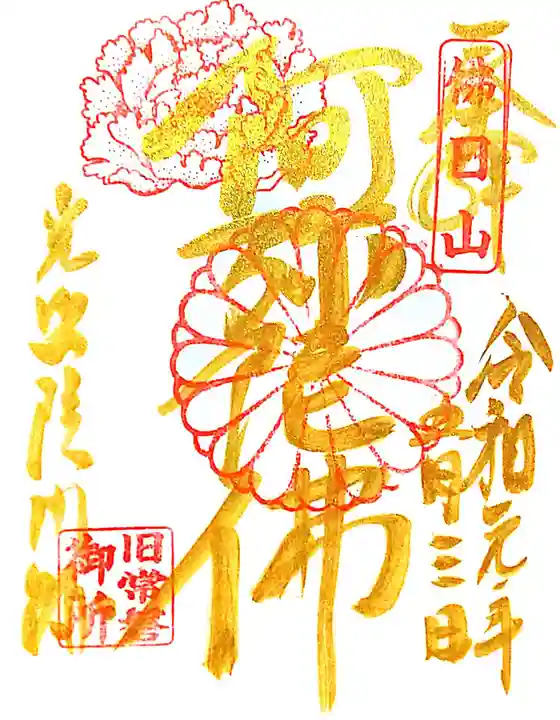 奉拝
佛日山
令和元年
月三日
阿弥陀佛
光照院門跡
旧常磐
御所